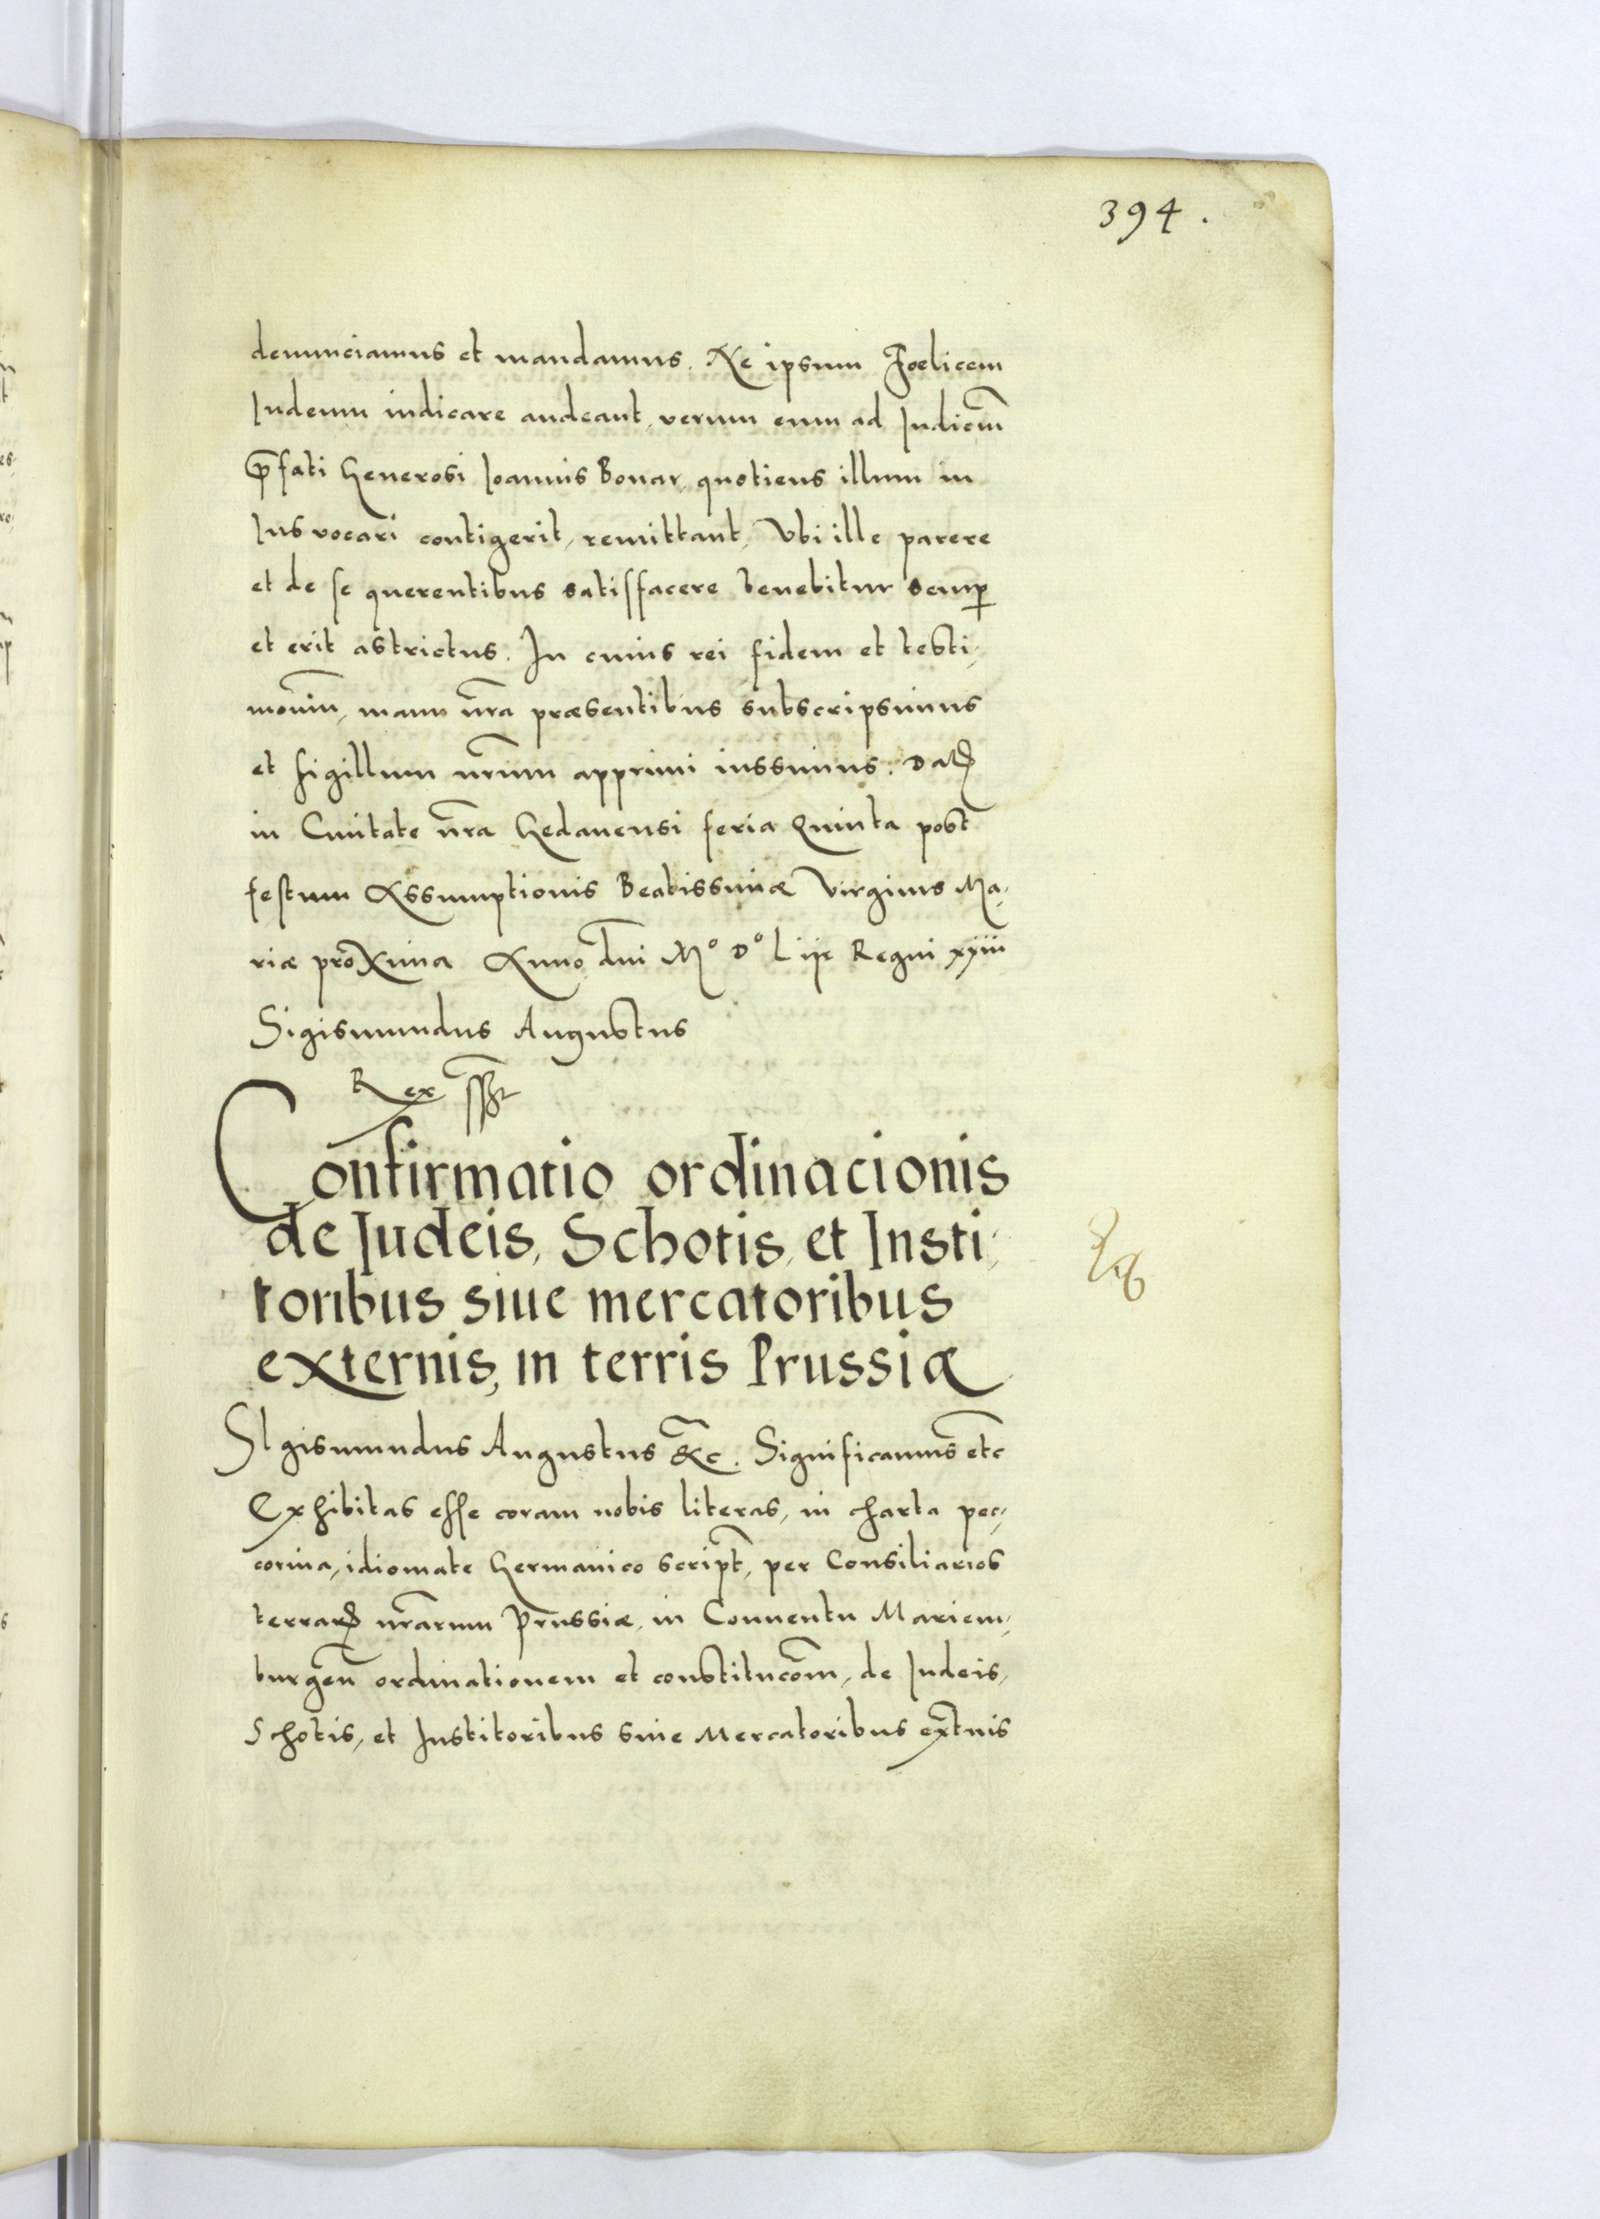 394.
denunciamus et mandamus. Ne ipsum Foelicem
Iudeum iudicare audeant, verum eum ad Iudiciu̅
p̅fati Generosi Ioannis Bonar, quotiens illum in
Ius vocari contigerit, remittant, Vbi ille parere
et de se querentibus satisfacere tenebitur semp̱
et erit astrictus. In cuius rei fidem et testi-
moniu̅, manu n̅ra præsentibus subscripsimus
et sigillum n̅rum apprimi iussimus. Datꝝ
in Ciuitate n̅ra Gedanensi feria Quinta post
festum Assumptionis Beatissimæ Virginis Ma-
riæ proxima Anno d̅ni Mº Dº Lijº Regni xxiii
Sigismundus Augustus
Rex
Confirmatio ordinacionis
de Iudeis, Schotis, et Insti-
toribus siue mercatoribus
externis, in terris Prussiæ
SIgismundus Augustus &c. Significamus etc
Exhibitas esse coram nobis literas, in charta pec-
corina, idiomate Germanico script̅, per Consiliarios
terrarꝝ n̅rarum Prussiæ, in Conuentu Mariem-
burgen̅ ordinationem et constituco̅m, de Iudeis,
Schotis, et Institoribus siue Mercatoribus ext̅nis